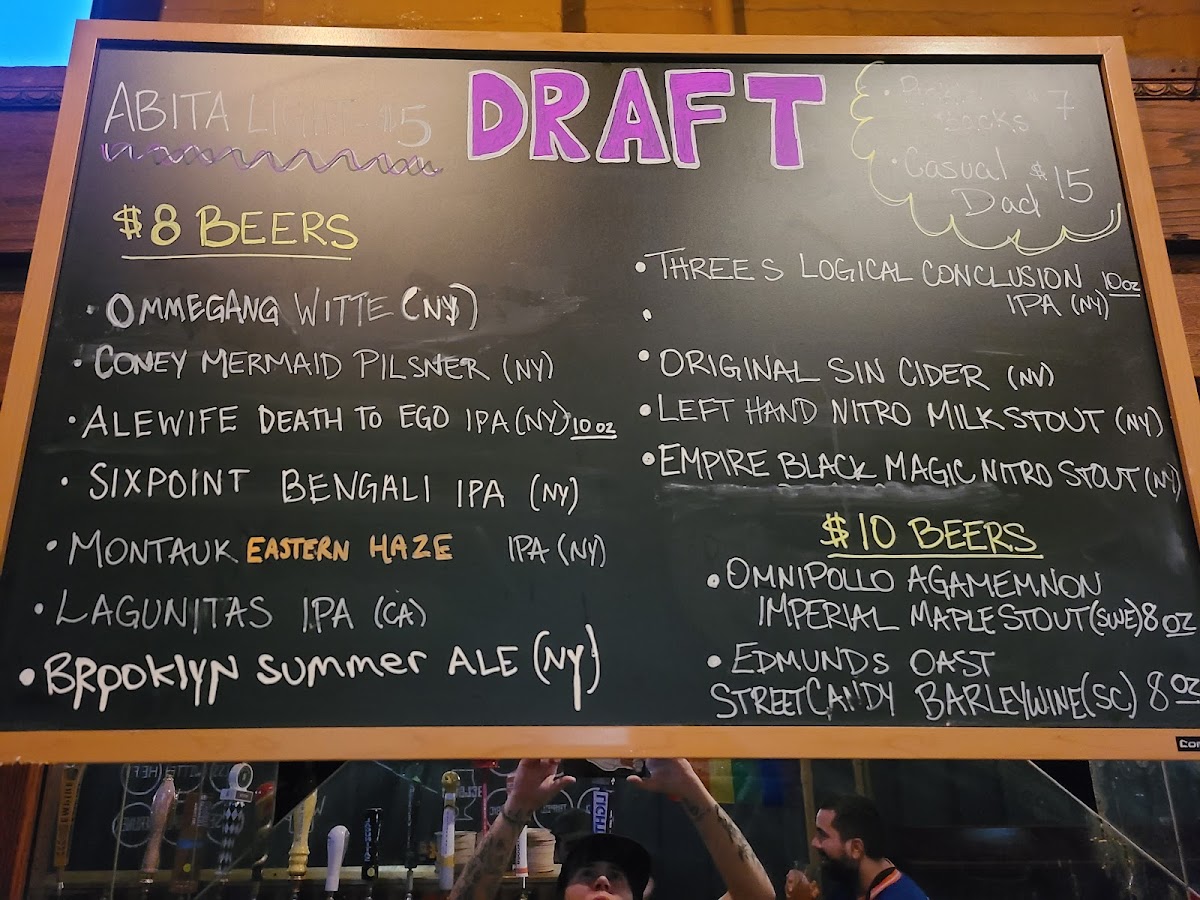 DRAFT
ABITA LIGHT $5
$7
Bocks
• Casual $15
Dad
$8 BEERS
• OMMEGANG WITTE (NY)
• CONEY MERMAID PILSNER (NY)
• ALEWIFE DEATH TO EGO IPA (NY) 10 OZ
• SIXPOINT BENGALI IPA (NY)
• MONTAUK EASTERN HAZE IPA (NY)
• LAGUNITAS IPA (CA)
• BROOKLYN SUMMER ALE (NY)
• THREES LOGICAL CONCLUSION 10 OZ
IPA (NY)
•
• ORIGINAL SIN CIDER (NY)
• LEFT HAND NITRO MILK STOUT (NY)
• EMPIRE BLACK MAGIC NITRO STOUT (NY)
$10 BEERS
• OMNIPOLLO AGAMEMNON
IMPERIAL MAPLE STOUT (SWE) 8 OZ
• EDMUNDS OAST
STREET CANDY BARLEYWINE (SC) 8 OZ